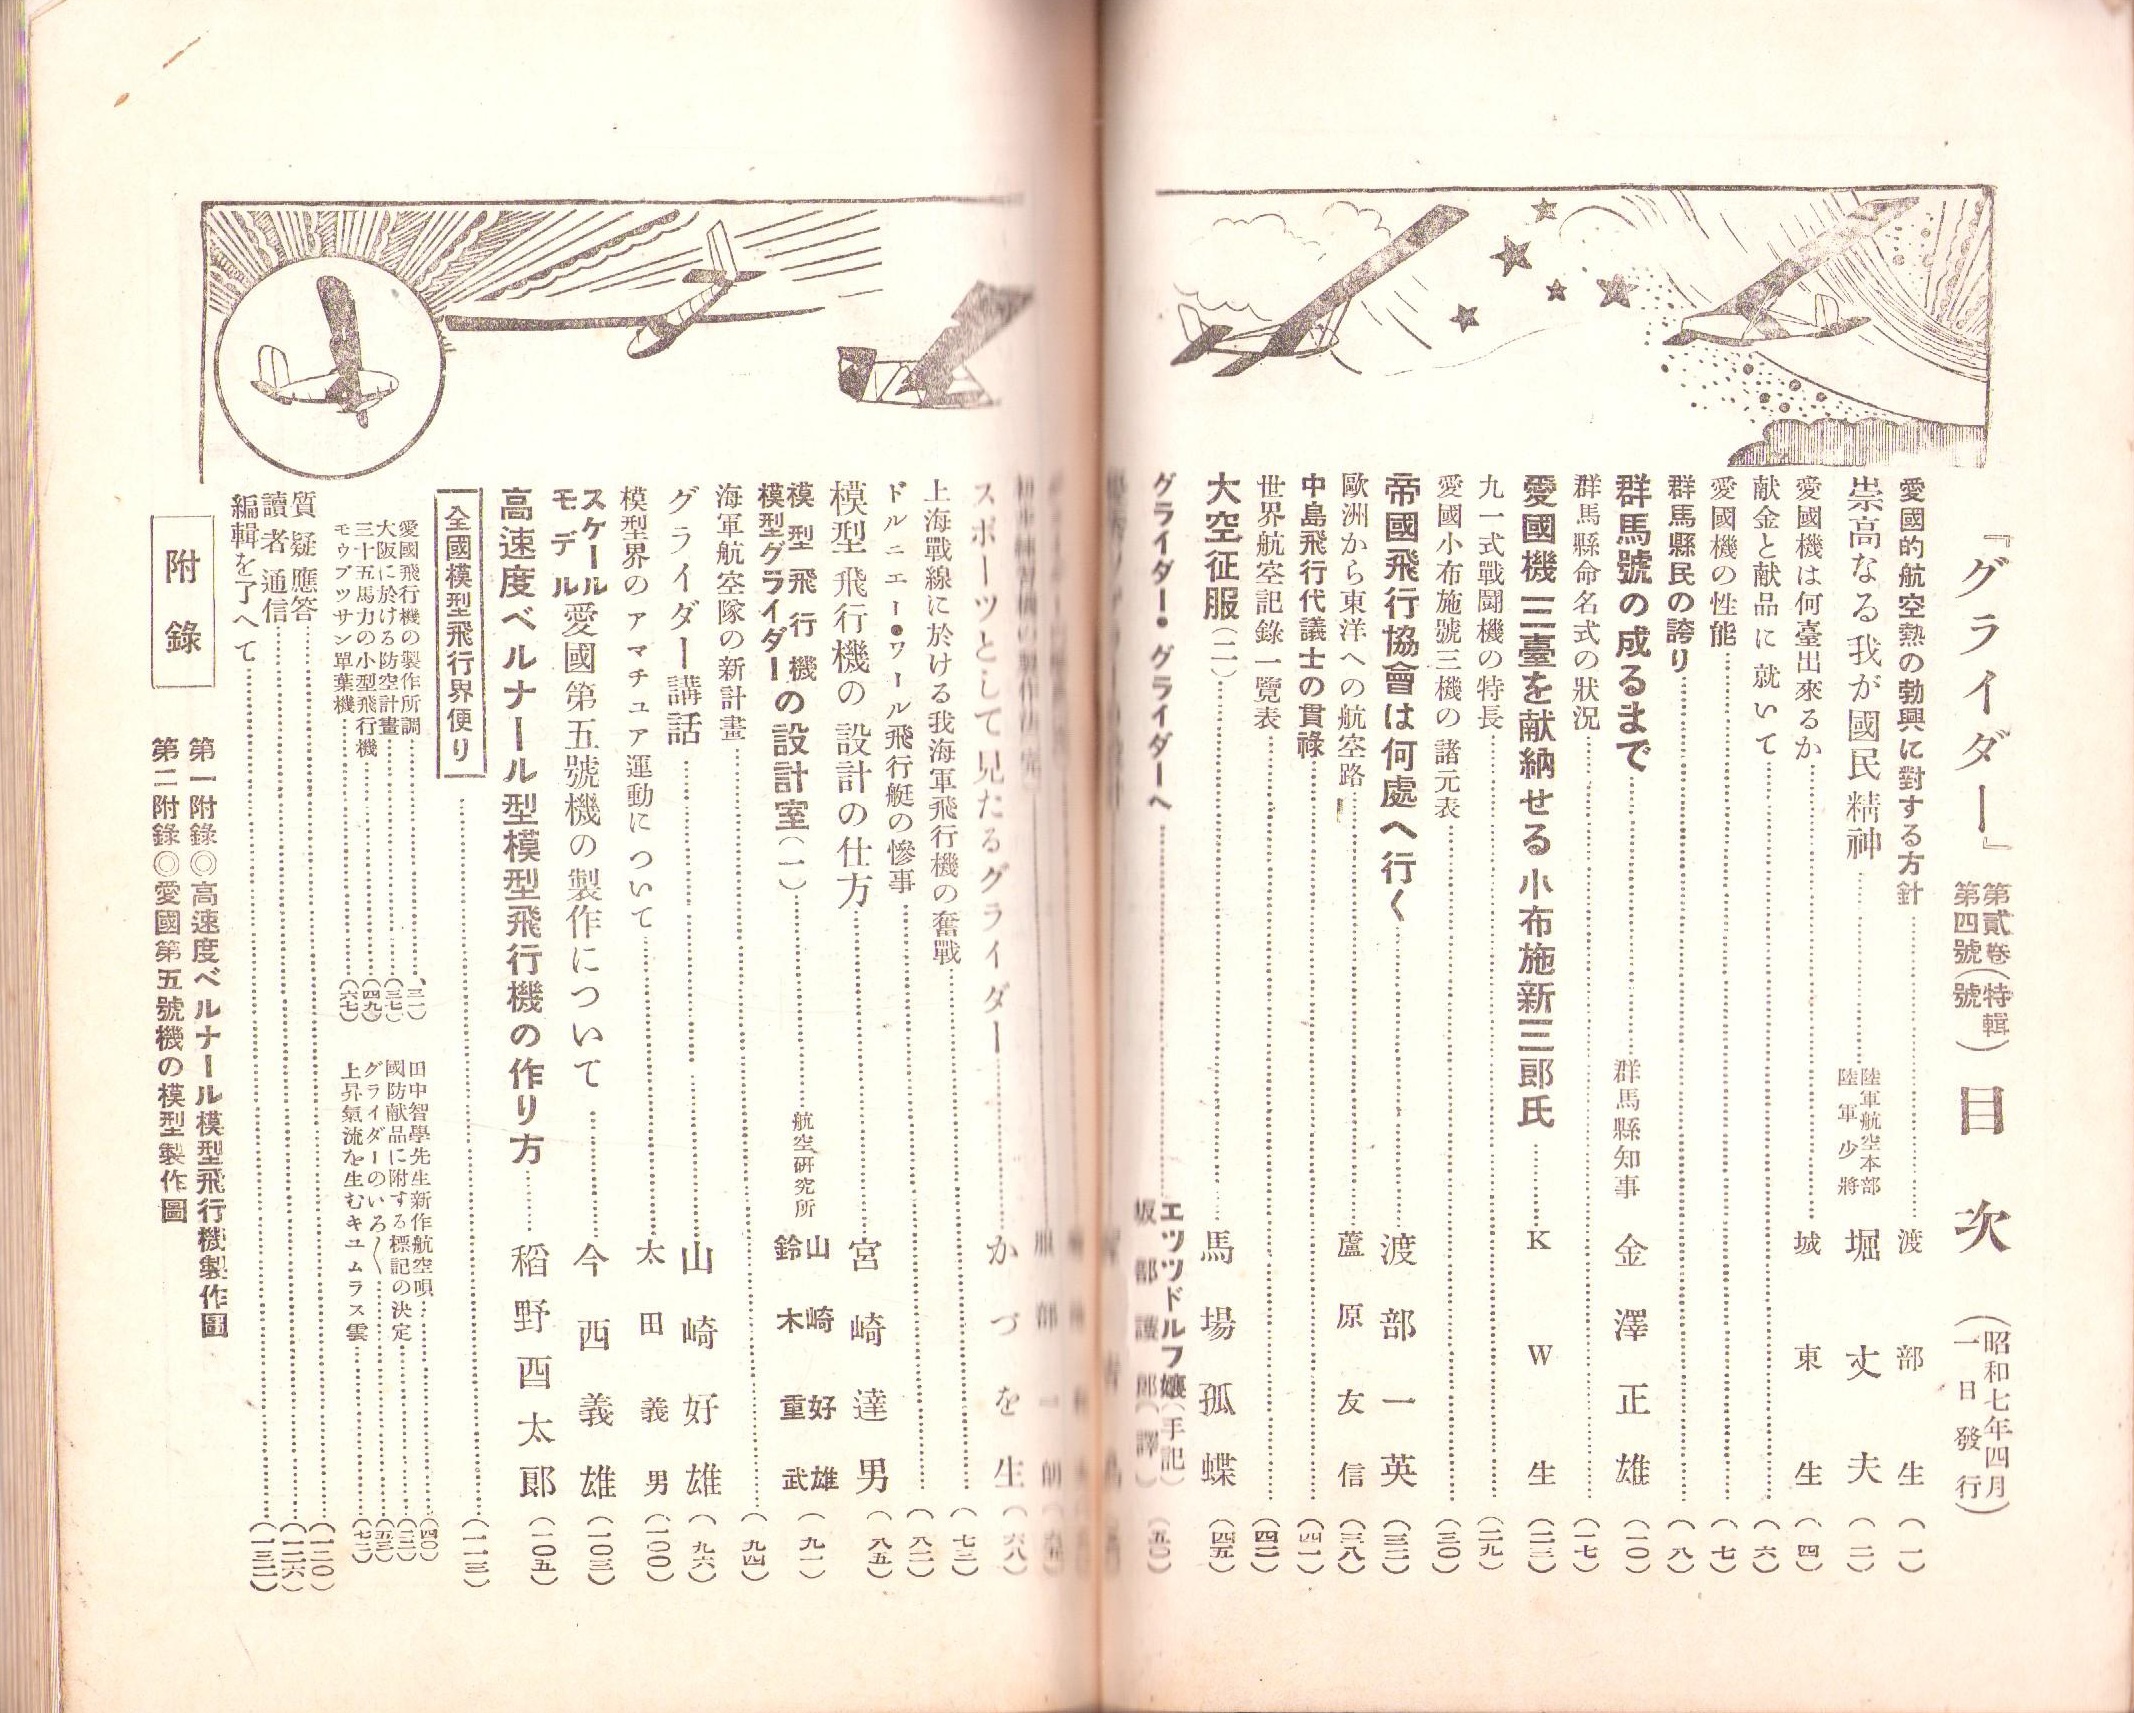 『グライダー』 第貳卷第四號（特輯號） 目次 （昭和七年四月一日發行）
愛國的航空熱の勃興に對する方針 渡部生 （一）
崇高なる我が國民精神 陸軍航空本部陸軍少將 堀丈夫 （二）
愛國機は何臺出來るか 城東生 （四）
献金と献品に就いて （六）
愛國機の性能 （七）
群馬縣民の誇り （八）
群馬號の成るまで 群馬縣知事 金澤正雄 （一〇）
群馬縣命名式の狀況 （一七）
愛國機三臺を献納せる小布施新三郎氏 KW生 （二三）
九一式戰鬪機の特長 （二九）
愛國小布施號三機の諸元表 （三〇）
帝國飛行協會は何處へ行く 渡部一英 （三二）
歐洲から東洋への航空路 蘆原友信 （三八）
中島飛行代議士の貫祿 （四一）
世界航空記錄一覽表 （四二）
大空征服（二） 馬場孤蝶 （四五）
グライダー・グライダーへ エツツドルフ孃（手記） 坂部護郎（譯） （五〇）
スポーツとして見たるグライダー かづを生 （六八）
上海戰線に於ける我海軍飛行機の奮戰 （七三）
ドルニエー・ワール飛行艇の慘事 （八二）
模型飛行機の設計の仕方 宮崎達男 （八五）
模型飛行機模型グライダーの設計室（一） 航空硏究所 山崎好雄 鈴木重武 （九一）
海軍航空隊の新計畫 （九四）
グライダー講話 山崎好雄 （九六）
模型界のアマチュア運動について 太田義男 （一〇〇）
スケールモデル愛國第五號機の製作について 今西義雄 （一〇三）
高速度ベルナール型模型飛行機の作り方 稻野酉太郞 （一〇五）
全國模型飛行界便り （一一三）
愛國飛行機の製作所調 （三一）
大阪に於ける防空計畫 （三七）
三十五馬力の小型飛行機 （四九）
モゥブツサン單葉機 （六七）
田中智學先生新作航空唄 （四〇）
國防献品に附する標記の決定 （二二）
グライダーのいろ〱 （五三）
上昇氣流を生むキュムラス雲 （七二）
質疑應答 （一二〇）
讀者通信 （一二六）
編輯を了へて （一三二）
附錄
第一附錄◎高速度ベルナール模型飛行機製作圖
第二附錄◎愛國第五號機の模型製作圖